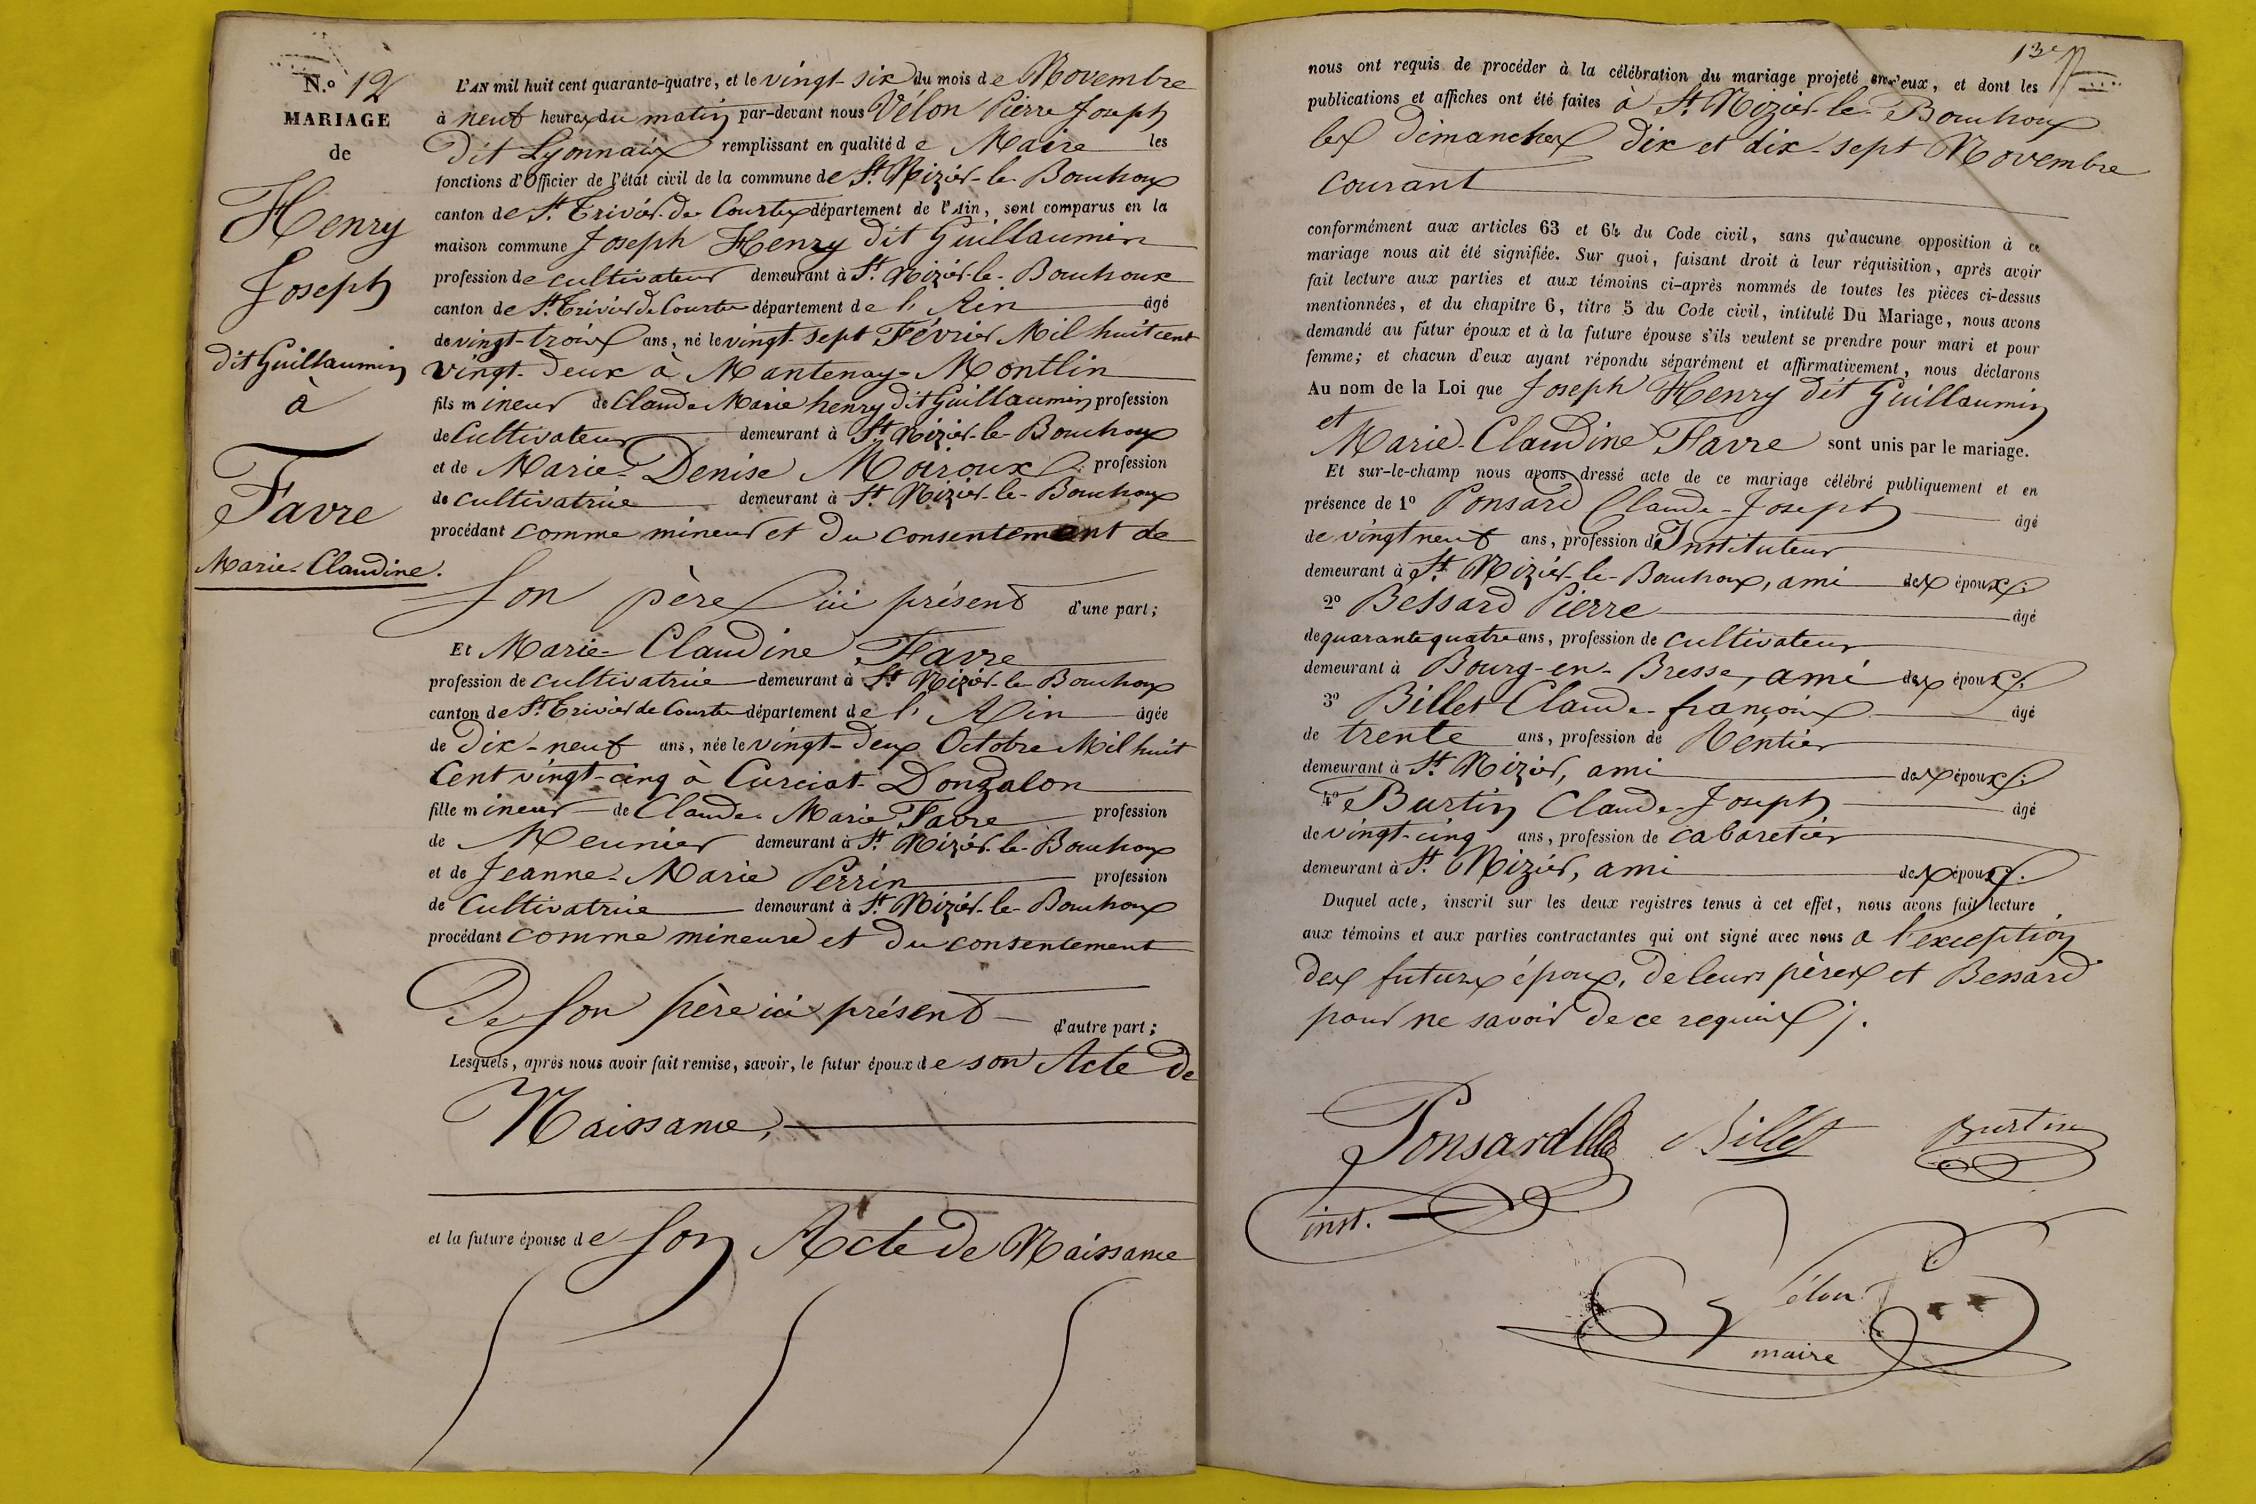 N.º 12
MARIAGE
de
Henry
Joseph
dit Guillaumin
à
Favre
Marie-Claudine.
L'AN mil huit cent quarante-quatre, et le vingt-six du mois de Novembre
à neuf heures du matin par-devant nous Vélon Pierre Joseph
dit Lyonnais remplissant en qualité de Maire les
fonctions d'Officier de l'état civil de la commune de St. Nizier-le-Bouchoux
canton de St. Trivier-de-Courtes département de l'Ain, sont comparus en la
maison commune Joseph Henry dit Guillaumin
profession de cultivateur demeurant à St. Nizier-le-Bouchoux
canton de St. Trivier de Courtes département de l'Ain âgé
de vingt-trois ans, né le vingt-sept Février Mil huit cent
vingt-deux à Mantenay-Montlin
fils mineur de Claude Marie henry dit Guillaumin profession
de Cultivateur demeurant à St. Nizier-le-Bouchoux
et de Marie-Denise Moiroux profession
de cultivatrice demeurant à St. Nizier-le-Bouchoux
procédant comme mineur et du consentement de
son père ici présent d'une part;
Et Marie-Claudine Favre
profession de cultivatrice demeurant à St. Nizier-le-Bouchoux
canton de St. Trivier de Courtes département de l'Ain âgée
de dix-neuf ans, née le vingt-deux Octobre Mil huit
Cent vingt-cinq à Curciat-Dongalon
fille mineur de Claude-Marie Favre profession
de Meunier demeurant à St. Nizier-le-Bouchoux
et de Jeanne-Marie Perrin profession
de Cultivatrice demeurant à St. Nizier-le-Bouchoux
procédant comme mineure et du consentement
De son père ici présent d'autre part;
Lesquels, après nous avoir fait remise, savoir, le futur époux de son Acte de
Naissance,
et la future épouse de son Acte de Naissance
13e
nous ont requis de procéder à la célébration du mariage projeté entr'eux, et dont les
publications et affiches ont été faites à St. Nizier-le-Bouchoux
les dimanches dix et dix-sept Novembre
courant
conformément aux articles 63 et 64 du Code civil, sans qu'aucune opposition à ce
mariage nous ait été signifiée. Sur quoi, faisant droit à leur réquisition, après avoir
fait lecture aux parties et aux témoins ci-après nommés de toutes les pièces ci-dessus
mentionnées, et du chapitre 6, titre 5 du Code civil, intitulé Du Mariage, nous avons
demandé au futur époux et à la future épouse s'ils veulent se prendre pour mari et pour
femme; et chacun d'eux ayant répondu séparément et affirmativement, nous déclarons
Au nom de la Loi que Joseph Henry dit Guillaumin
et
Marie-Claudine Favre sont unis par le mariage.
Et sur-le-champ nous avons dressé acte de ce mariage célébré publiquement et en
présence de 1º Ponsard Claude-Joseph âgé
de vingt neuf ans, profession d'Instituteur
demeurant à St. Nizier-le-Bouchoux, ami des époux.
2º Bessard Pierre âgé
de quarante quatre ans, profession de cultivateur
demeurant à Bourg-en-Bresse, ami des époux.
3º Billet Claude-françois âgé
de trente ans, profession de Rentier
demeurant à St. Nizier, ami des époux.
4º Burtin Claude-Joseph âgé
de vingt-cinq ans, profession de cabaretier
demeurant à St. Nizier, ami des époux.
Duquel acte, inscrit sur les deux registres tenus à cet effet, nous avons fait lecture
aux témoins et aux parties contractantes qui ont signé avec nous à l'exception
des futurs époux, de leurs pères et Bessard
pour ne savoir de ce requis.
Ponsard Billet Burtin
inst.
Vélon
maire